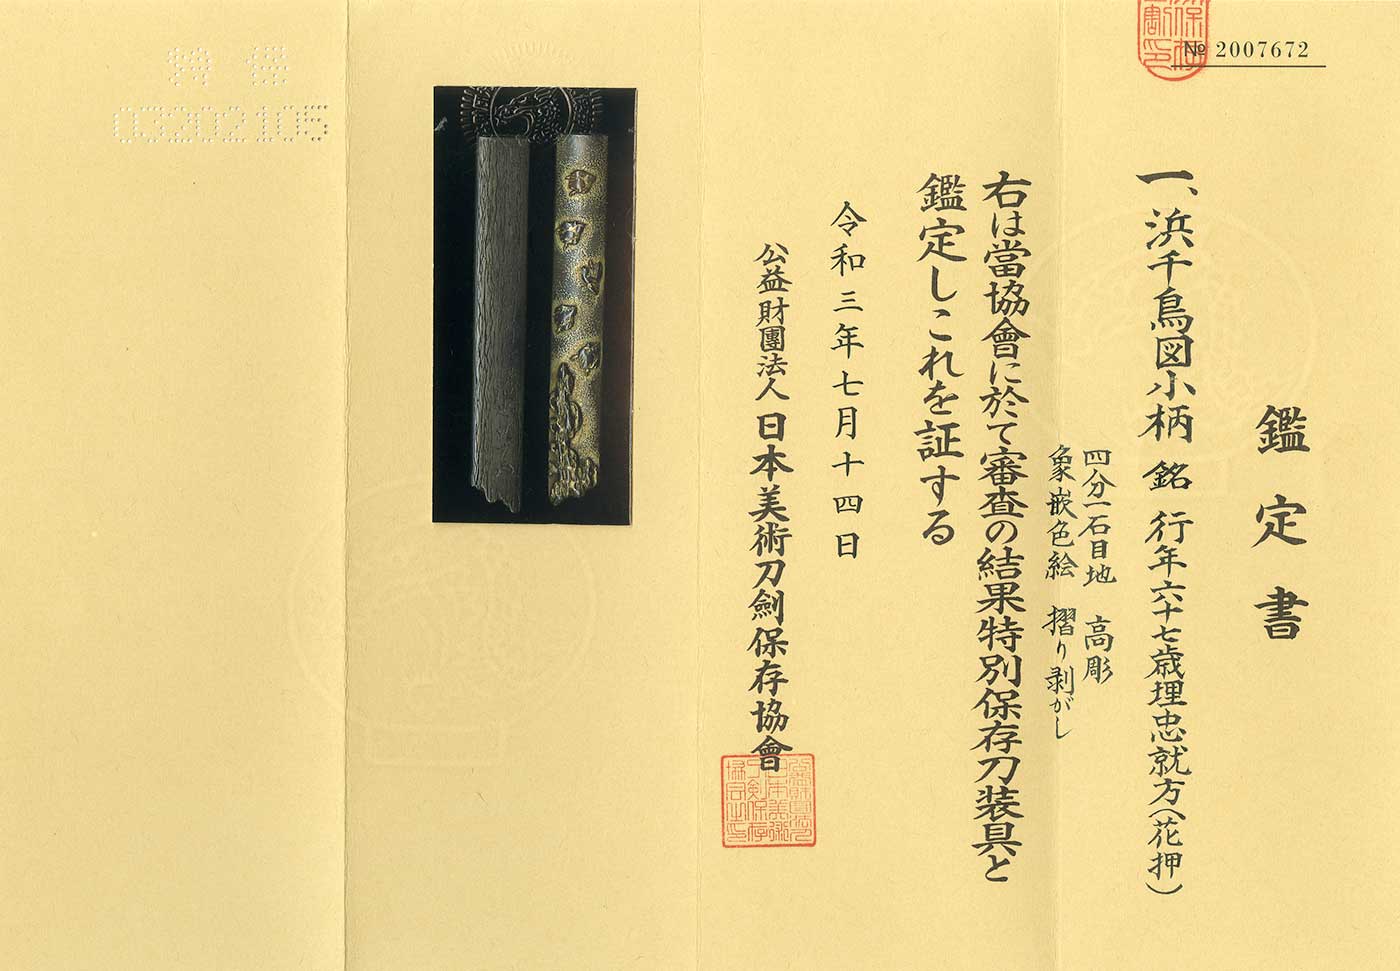 № 2007672
鑑定書
一、浜千鳥図小柄 銘 行年六十七歳埋忠就方(花押)
四分一石目地 高彫
象嵌色絵 摺り剥がし
右は當協會に於て審査の結果特別保存刀装具と
鑑定しこれを証する
令和三年七月十四日
公益財團法人 日本美術刀劍保存協會
03202105